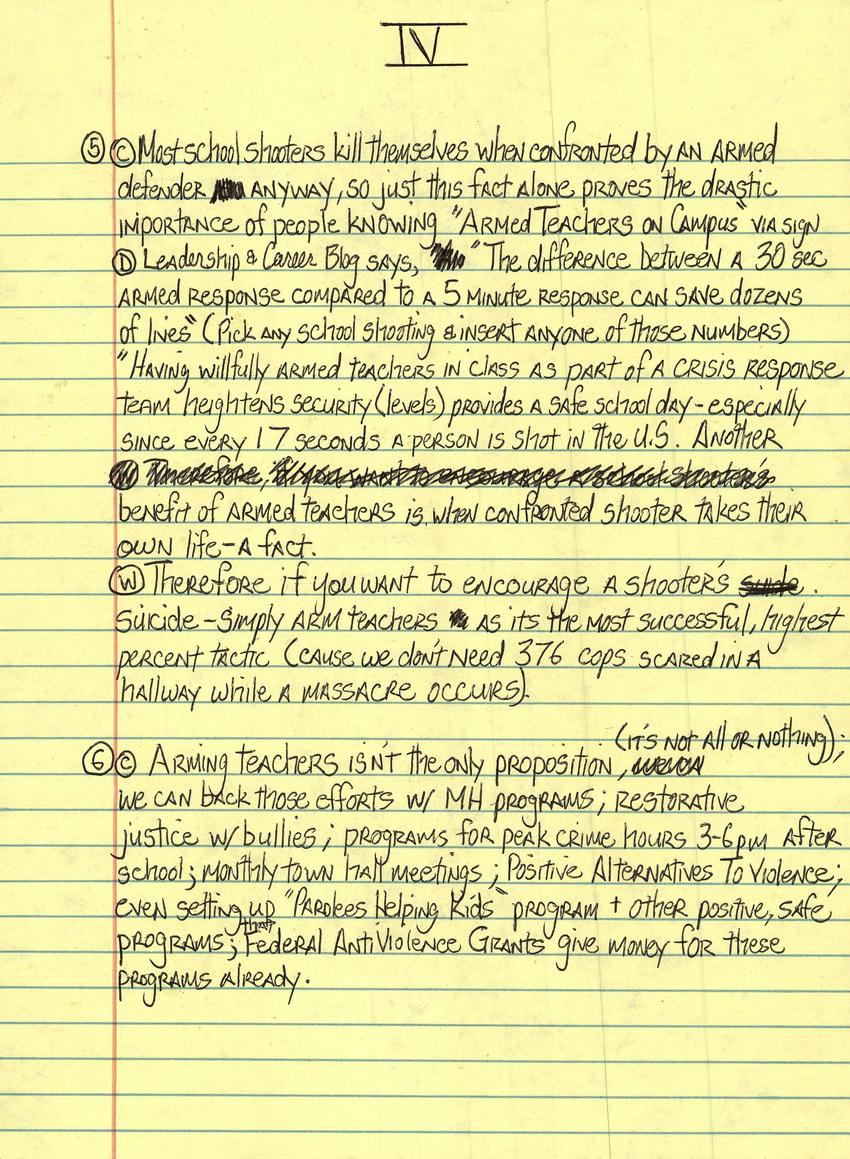 IV
⑤ Ⓒ Most school shooters kill themselves when confronted by an armed
defender anyway, so just this fact alone proves the drastic
importance of people knowing "Armed Teachers on Campus" via sign
Ⓓ Leadership & Career Blog says, " The difference between a 30 sec
armed response compared to a 5 minute response can save dozens
of lives" (Pick any school shooting & insert anyone of those numbers)
"Having willfully armed teachers in class as part of a crisis response
team heightens security (levels) provides a safe school day - especially
since every 17 seconds a person is shot in the U.S. Another
Therefore, if you want to encourage a school shooter's
benefit of armed teachers is, when confronted shooter takes their
own life - a fact.
Ⓦ Therefore if you want to encourage a shooter's
Suicide - Simply arm teachers as its the most successful, highest
percent tactic (cause we don't need 376 cops scared in a
hallway while a massacre occurs).
(it's not all or nothing);
⑥ Ⓒ Arming teachers isn't the only proposition,
we can back those efforts w/ MH programs; restorative
justice w/ bullies; programs for peak crime hours 3-6pm after
school; monthly town hall meetings; Positive Alternatives To Violence;
even setting up "Parolees Helping Kids" program + other positive, safe
that
programs; Federal AntiViolence Grants give money for these
programs already.